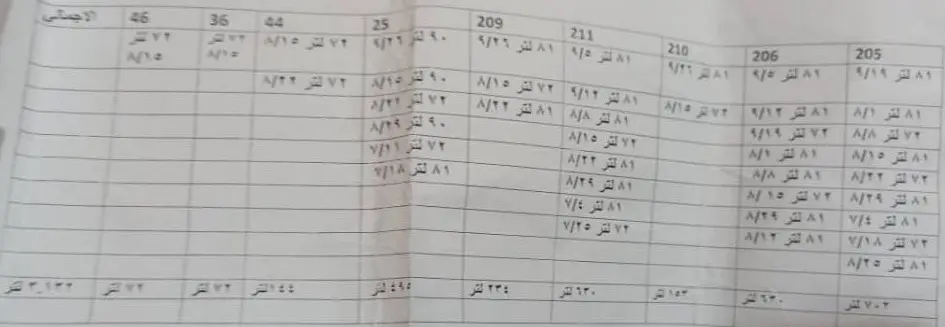 205 206 210 211 209 25 44 36 46 الاجمالى
٨١ لتر ٩/١٩ ٨١ لتر ٩/٥ ٨١ لتر ٩/٢٦ ٨١ لتر ٩/٥ ٨١ لتر ٩/٢٦ ٩٠ لتر ٩/٢٦ ٧٢ لتر ٨/١٥ ٧٢ لتر ٨/١٥ ٧٢ لتر ٨/١٥
٨١ لتر ٨/١ ٨١ لتر ٩/١٢ ٧٢ لتر ٨/١٥ ٨١ لتر ٩/١٢ ٧٢ لتر ٨/١٥ ٩٠ لتر ٨/١٥ ٧٢ لتر ٨/٢٢
٧٢ لتر ٨/٨ ٧٢ لتر ٩/١٩ ٨١ لتر ٨/٨ ٨١ لتر ٨/٢٢ ٧٢ لتر ٨/٢٢
٨١ لتر ٨/١٥ ٨١ لتر ٨/١ ٧٢ لتر ٨/١٥ ٩٠ لتر ٨/٢٩
٧٢ لتر ٨/٢٢ ٨١ لتر ٨/٨ ٨١ لتر ٨/٢٢ ٧٢ لتر ٧/١١
٨١ لتر ٨/٢٩ ٧٢ لتر ٨/١٥ ٨١ لتر ٨/٢٩ ٨١ لتر ٧/١٨
٨١ لتر ٧/٤ ٨١ لتر ٨/٢٩ ٨١ لتر ٧/٤
٧٢ لتر ٧/١٨ ٨١ لتر ٨/١٢ ٧٢ لتر ٧/٢٥
٨١ لتر ٨/٢٥
٧٠٢ لتر ٦٣٠ لتر ١٥٣ لتر ٦٣٠ لتر ٢٣٤ لتر ٤٩٥ لتر ١٤٤ لتر ٧٢ لتر ٧٢ لتر ٣.١٣٢ لتر